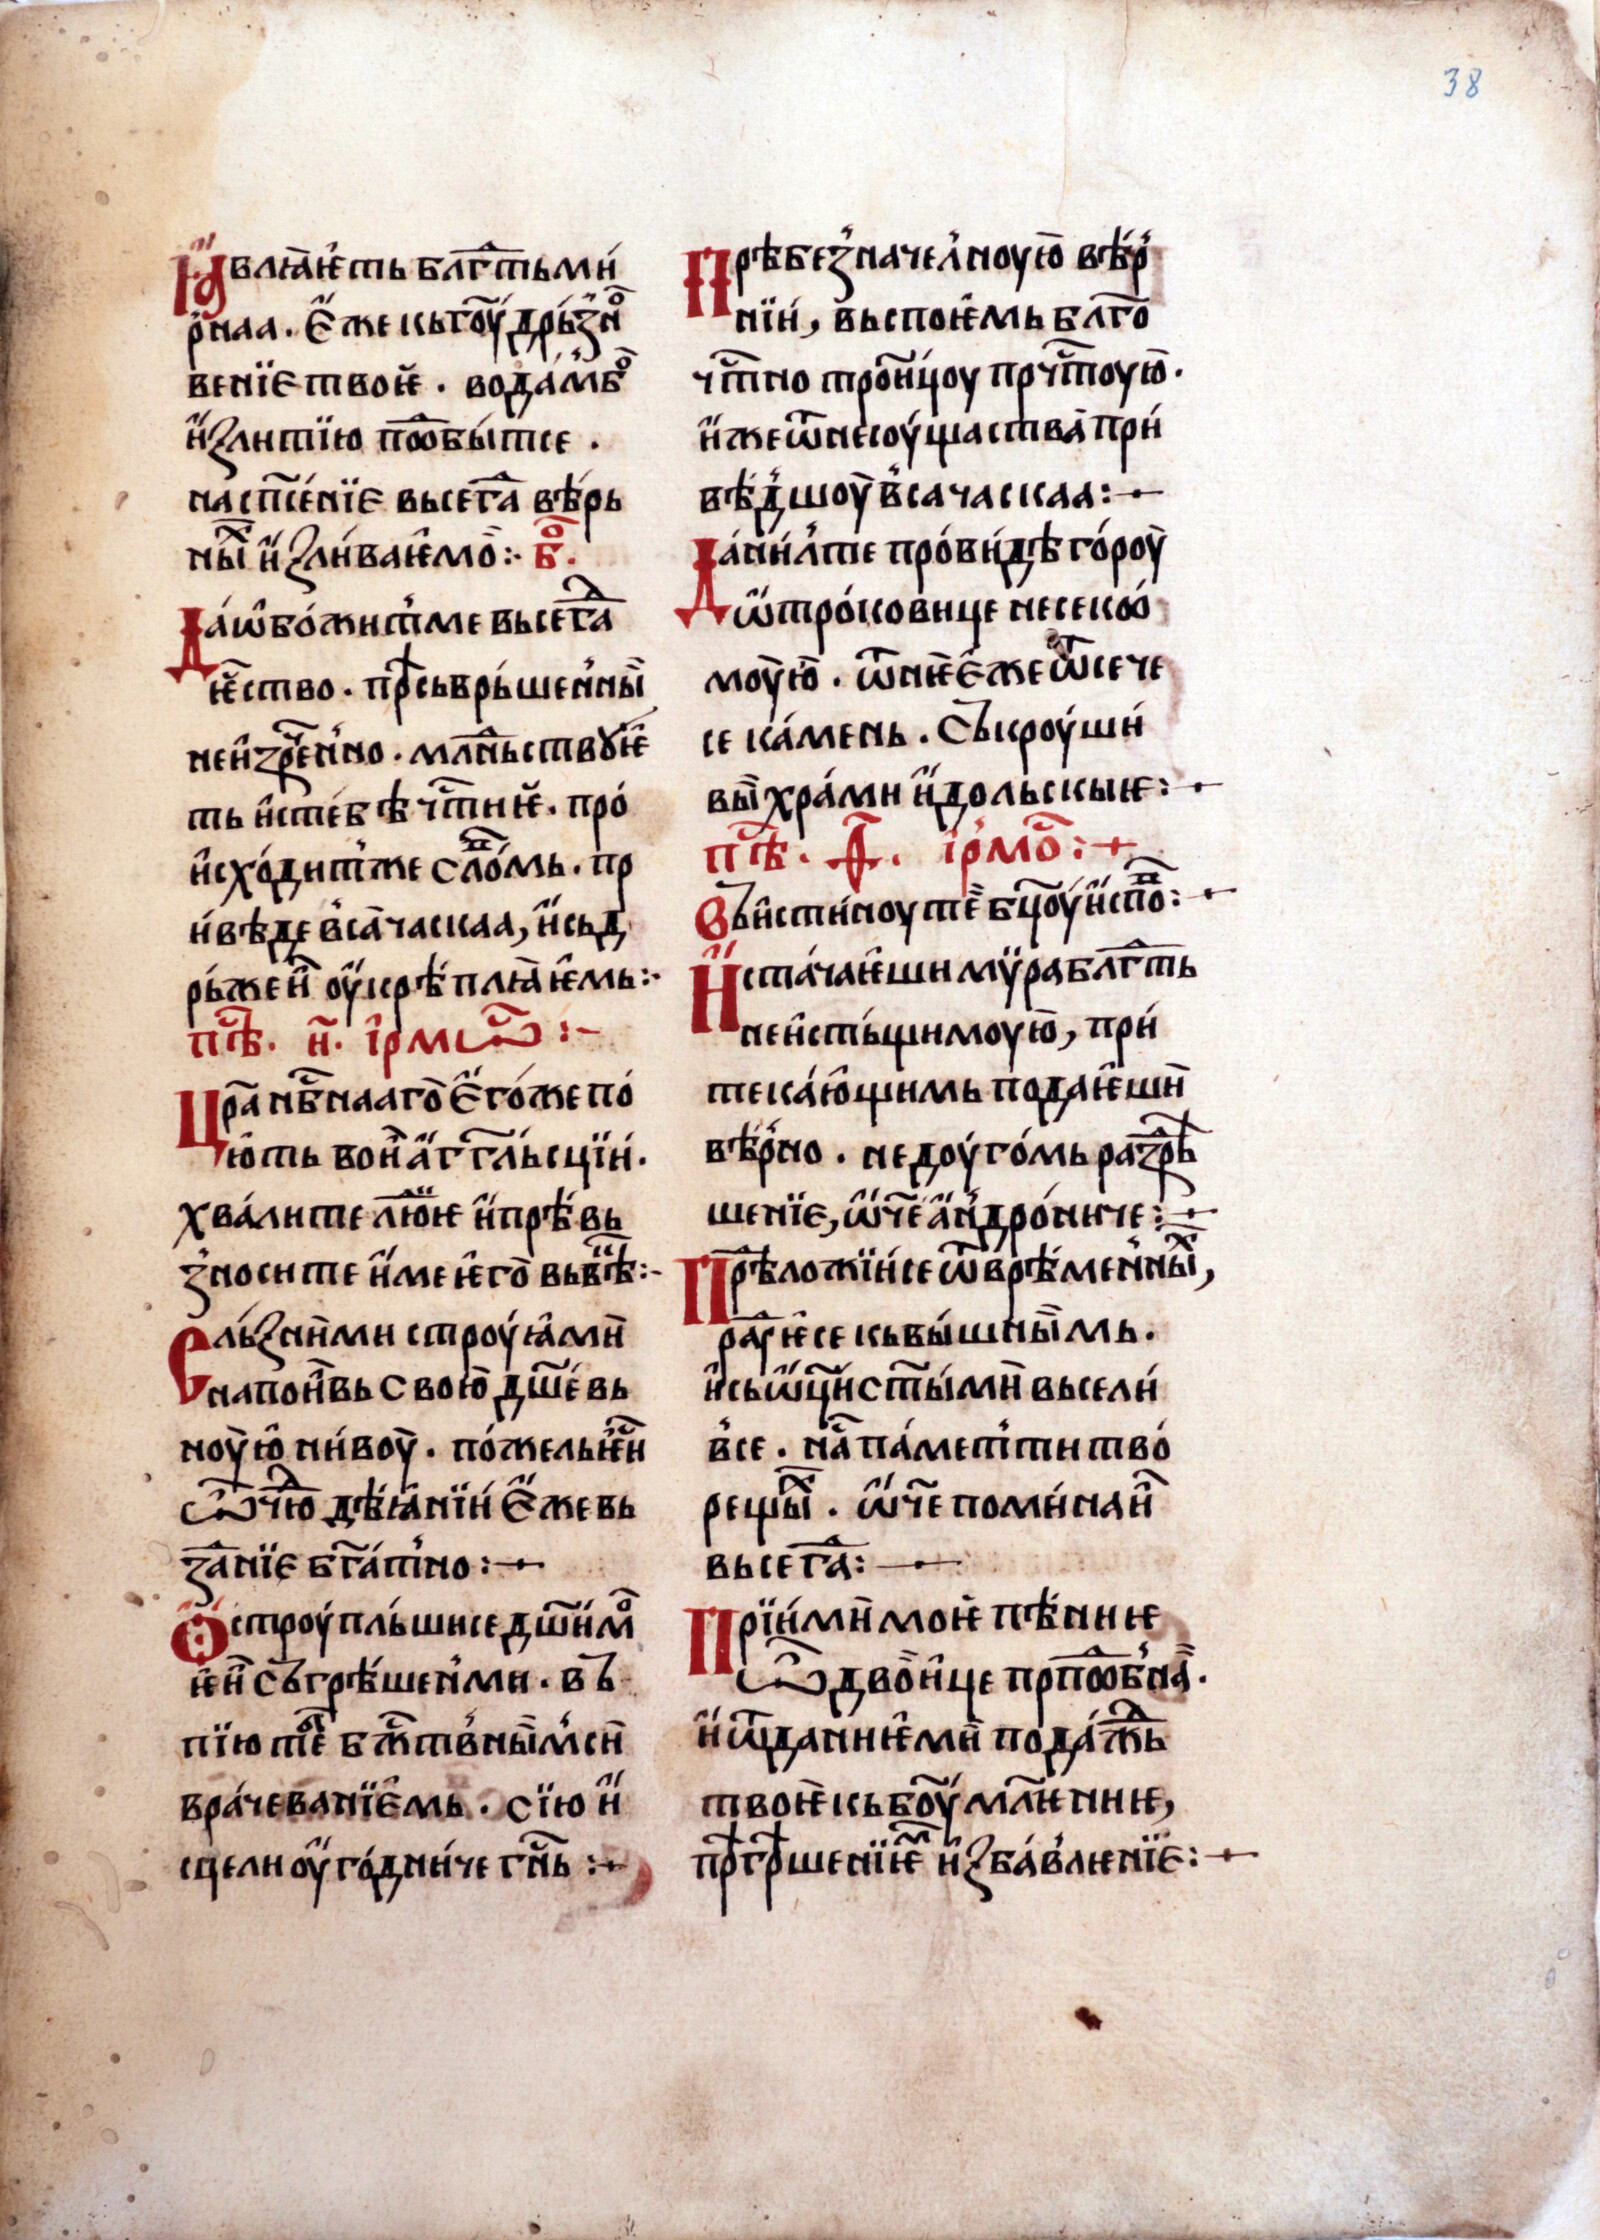 38
Ꙗ҆влꙗ́ѥть блг҇тьми́
рнаа. Є҆же кь гоу҃ дрьзно
венїе твоѥ. водамь бо
и҆ꙁлитїю поⷣбы́тсе.
на сп҃се́нїе вьсегⷣа вѣ́рь
ныⷯ и҆ꙁли́ваѥмо:· б҃о.
Да ѡ҆бо́жит ме вьсегⷣа
ѥ҆ство. прⷭ҇ьврьше́нны
неи҆ꙁре́нно. млⷣньствꙋѥ
ть и҆с тебѣ чⷭ҇тиѥ. про́
и҆схо́дит же сло́вомь. пр
и́веде вса́часкаа, и҆ сьд
рьже и҆ оу҆крѣ́плꙗѥмь:·
пѣⷭ҇. и҃. і҆рмѡⷭ҇:-
Цр҃ꙗ нбⷭ҇нааго Є҆го́же по
ю́ть вои҆ а҆гг҃льсцїи.
хва́лите лю́дїѥ и҆ прѣвь
ꙁносите и҆ме ѥго̀ вь вѣ́кы:-
Сльꙁними строу́ꙗми
напои҆вь свою̀ дш҃евь
ноую ни́воу. пожельѥ́и
ѿчⷭ҇ю дѣꙗ́нїи Є҆же вь
ꙁⷣанїе бг҃а́тно:-
О҆строупльши се дш҃и мо
ѥи҆ сьгрѣше́нми. вь
пїю ти́ бжⷭ҇твны́м си
враче́ванїемь. сїю и҆
сцели оу҆го́дниче гнⷭ҇ь:-
Прѣбезначе́лноую вѣ́р
нїи, вьспоѥмь блг҃о
чⷭ҇тно тро́ицоу прчⷭ҇тоую.
и҆же ѿ несоу́щаства при́
вѣдшоу вса́часкаа:-
Да́ниил те про́видѣ го́роу
ѡ҆тро́ковице несеко́
моую. ѿ нѥ Є҆же ѿсе́че
се ка́мень. Ськроуши
вы̀ хра́ми и҆дольскыѥ:-
пѣⷭ҇. ѳ҃. і҆рмоⷭ҇:-
Вьи҆стиноу те бц҃оу и҆споⷡ:-
И҆ста́чаѥши мѵ́ра блг҇ть
неи҆сты́щимоую, при́
тека́ющимь подаѥши
вѣ́рно. недоуго́мь раꙁрѣ
шенїе, ѡ҆ч҃е а҆ндро́ниче:-
Прѣложїи се ѿ врѣме́нныⷯ,
рад́ѥсе кь вы́шнымь.
и҆ сь ѡ҆ц҃и ст҃ыми вьсели
в се. на па́мет ти тво́
рещыⷯ. ѡ҆ч҃е помина́и
вьсегⷣа:-
Прїи́ми моѥ пѣ́ниѥ
Ѿ дво́ице прпⷣобнаа.
и҆ ѿданиѥми пода́жⷣь
твоѥ кь боу҃ млⷭ҇ниѥ,
прⷭ҇грⷭ҇шенїѥмь и҆ꙁба́влѥнїе:-